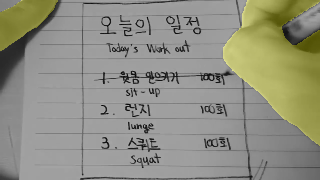 오늘의 일정
Today's Work out
1. 윗몸 일으키기 100회
sit-up
2. 런지 100회
lunge
3. 스쿼트 100회
squat